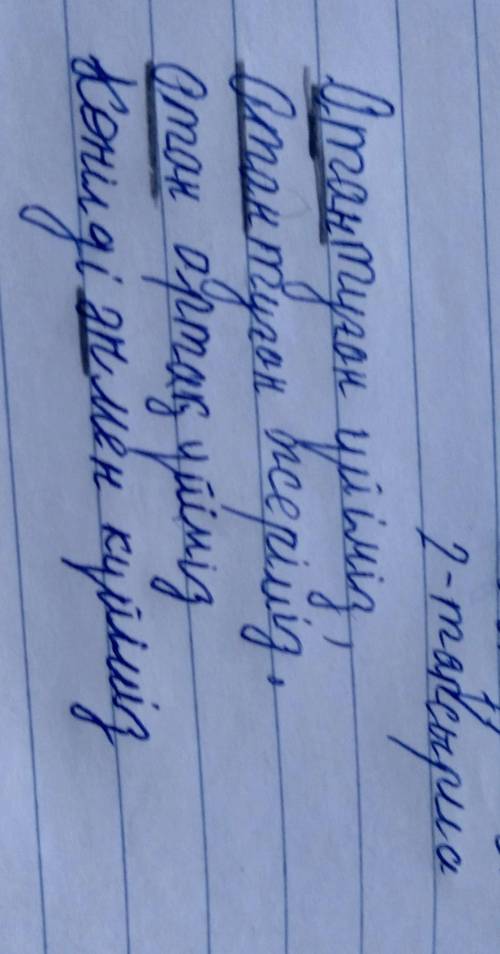 2-тапсырма
Отан туған үйіміз,
Отан туған жеріміз,
Отан ортақ үйіміз
Көңілді әнмен күйіміз